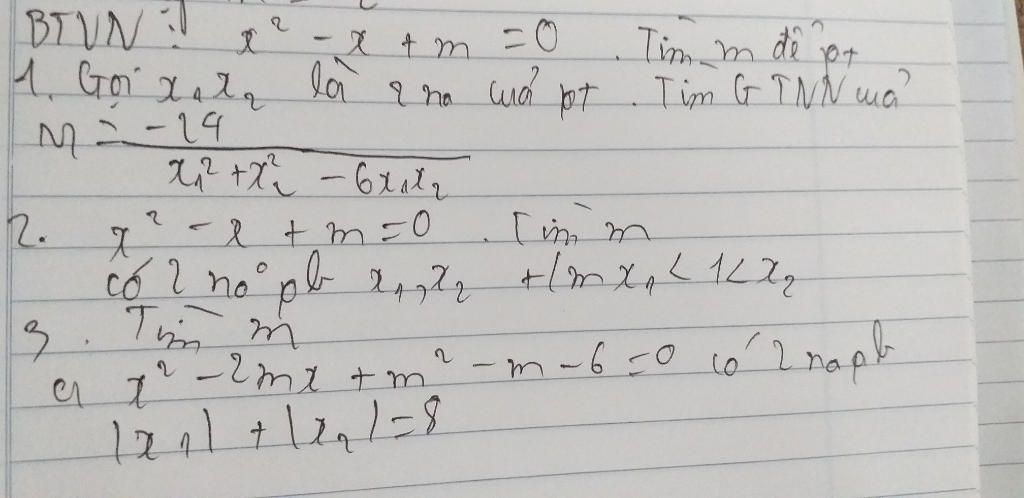 BTVN : x² - x + m = 0 . Tìm m để pt
1. Gọi x₁ x₂ là 2 no của pt . Tìm GTNN của
M = -24 / x₁² + x₂² - 6x₁x₂
2. x² - x + m = 0 . Tìm m
có 2 no pb x₁, x₂ t/m x₁ < 1 < x₂
3. Tìm m
a x² - 2mx + m² - m - 6 = 0 có 2 no pb
|x₁| + |x₂| = 8